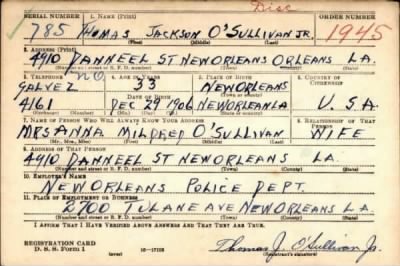 Disc
SERIAL NUMBER 1. NAME (Print) ORDER NUMBER
785 THOMAS JACKSON O'SULLIVAN JR. 1945
(First) (Middle) (Last)
2. ADDRESS (Print)
4910 DANNEEL ST NEW ORLEANS ORLEANS LA.
(Number and street or R. F. D. number) (Town) (County) (State)
3. TELEPHONE 4. AGE IN YEARS 5. PLACE OF BIRTH 6. COUNTRY OF CITIZENSHIP
GALVEZ 33 NEWORLEANS
DATE OF BIRTH
4161 DEC 29 1906 NEWORLEANLA U.S.A.
(Exchange) (Number) (Mo.) (Day) (Yr.) (State or country)
7. NAME OF PERSON WHO WILL ALWAYS KNOW YOUR ADDRESS 8. RELATIONSHIP OF THAT PERSON
MRS ANNA MILDRED O'SULLIVAN WIFE
(Mr., Mrs., Miss) (First) (Middle) (Last)
9. ADDRESS OF THAT PERSON
4910 DANNEEL ST NEW ORLEANS LA.
(Number and street or R. F. D. number) (Town) (County) (State)
10. EMPLOYER'S NAME
NEW ORLEANS POLICE DEPT.
11. PLACE OF EMPLOYMENT OR BUSINESS
2700 TULANE AVE NEW ORLEANS LA
(Number and street or R. F. D. number) (Town) (County) (State)
I AFFIRM THAT I HAVE VERIFIED ABOVE ANSWERS AND THAT THEY ARE TRUE.
REGISTRATION CARD
D. S. S. Form 1 (over) Thomas J. O'Sullivan Jr.
(Registrant's signature)